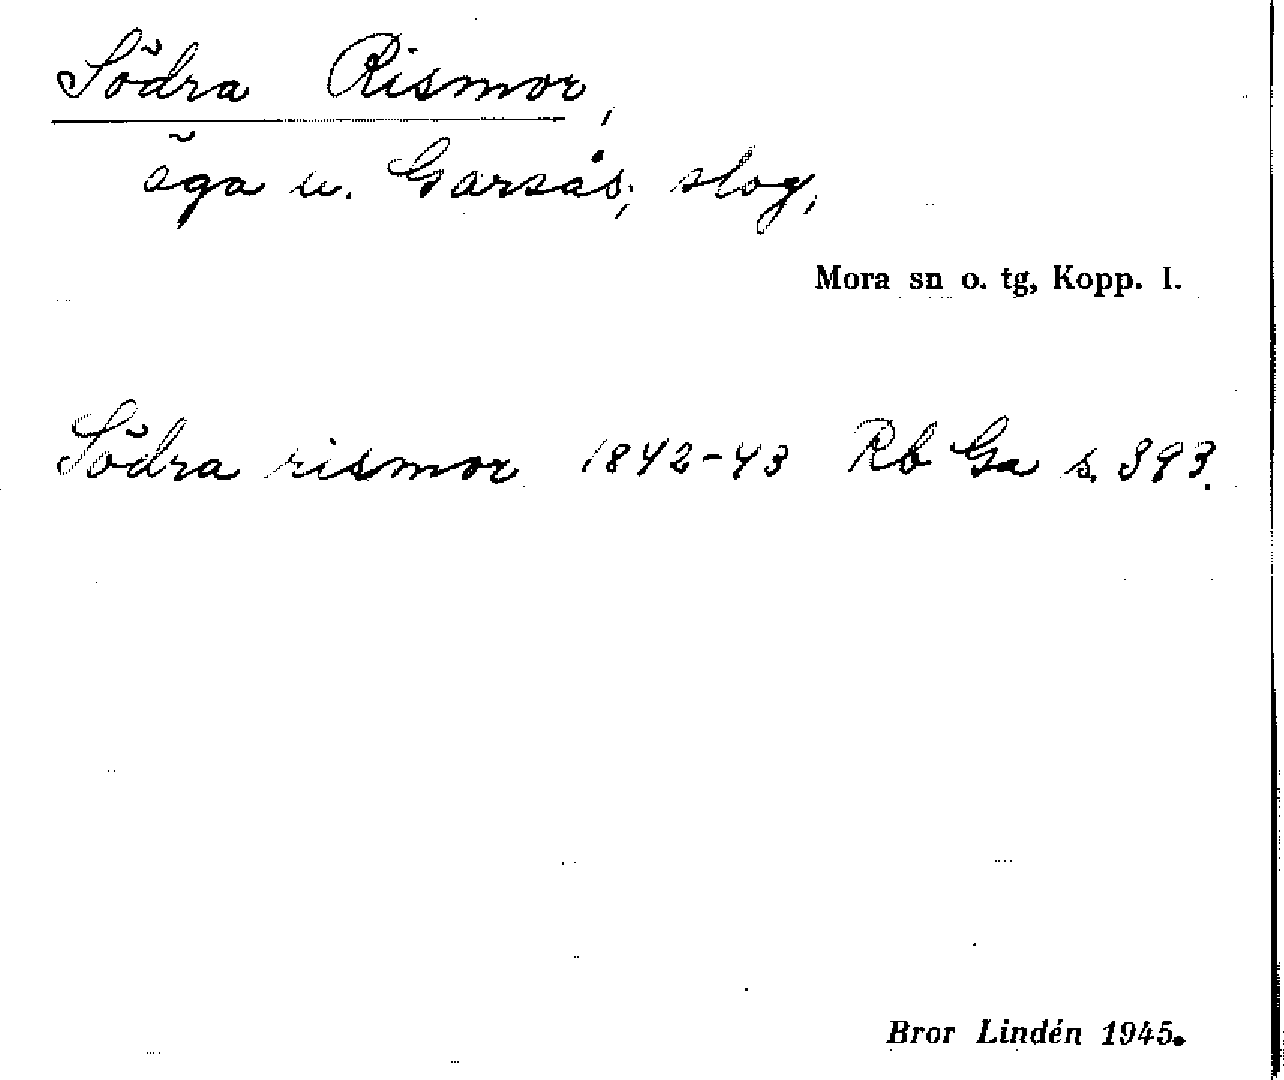 Södra Rismor,
äga u. Garsås; slog,
Mora sn o. tg, Kopp. l.
Södra rismor 1842-43 Rb Ga s. 393.
Bror Lindén 1945.